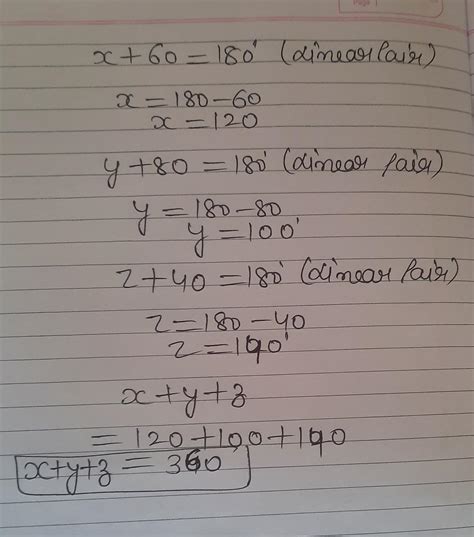 Page
x + 60 = 180° (Linear Pair)
x = 180 - 60
x = 120
y + 80 = 180° (Linear Pair)
y = 180 - 80
y = 100°
z + 40 = 180° (Linear Pair)
z = 180 - 40
z = 140°
x + y + z
= 120 + 100 + 140
x + y + z = 360